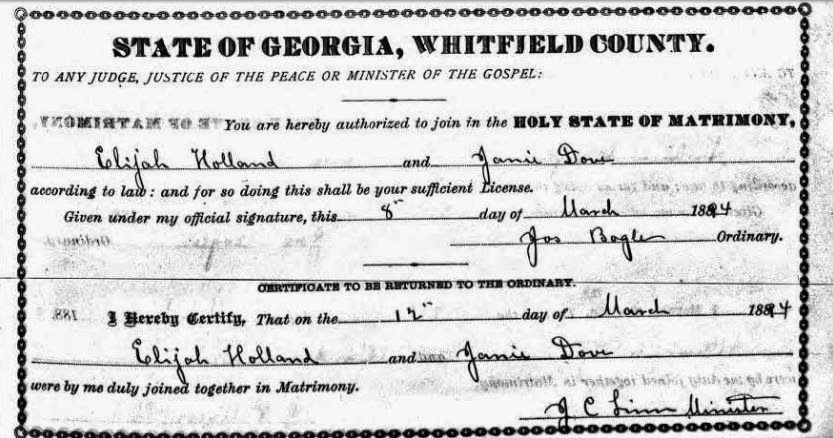 STATE OF GEORGIA, WHITFIELD COUNTY.
TO ANY JUDGE, JUSTICE OF THE PEACE OR MINISTER OF THE GOSPEL:
You are hereby authorized to join in the HOLY STATE OF MATRIMONY,
Elijah Holland and Janie Dove
according to law: and for so doing this shall be your sufficient License.
Given under my official signature, this 8" day of March 1894
Jos Bogle Ordinary.
CERTIFICATE TO BE RETURNED TO THE ORDINARY.
I Hereby Certify, That on the 12" day of March 1894
Elijah Holland and Janie Dove
were by me duly joined together in Matrimony.
J C Minister